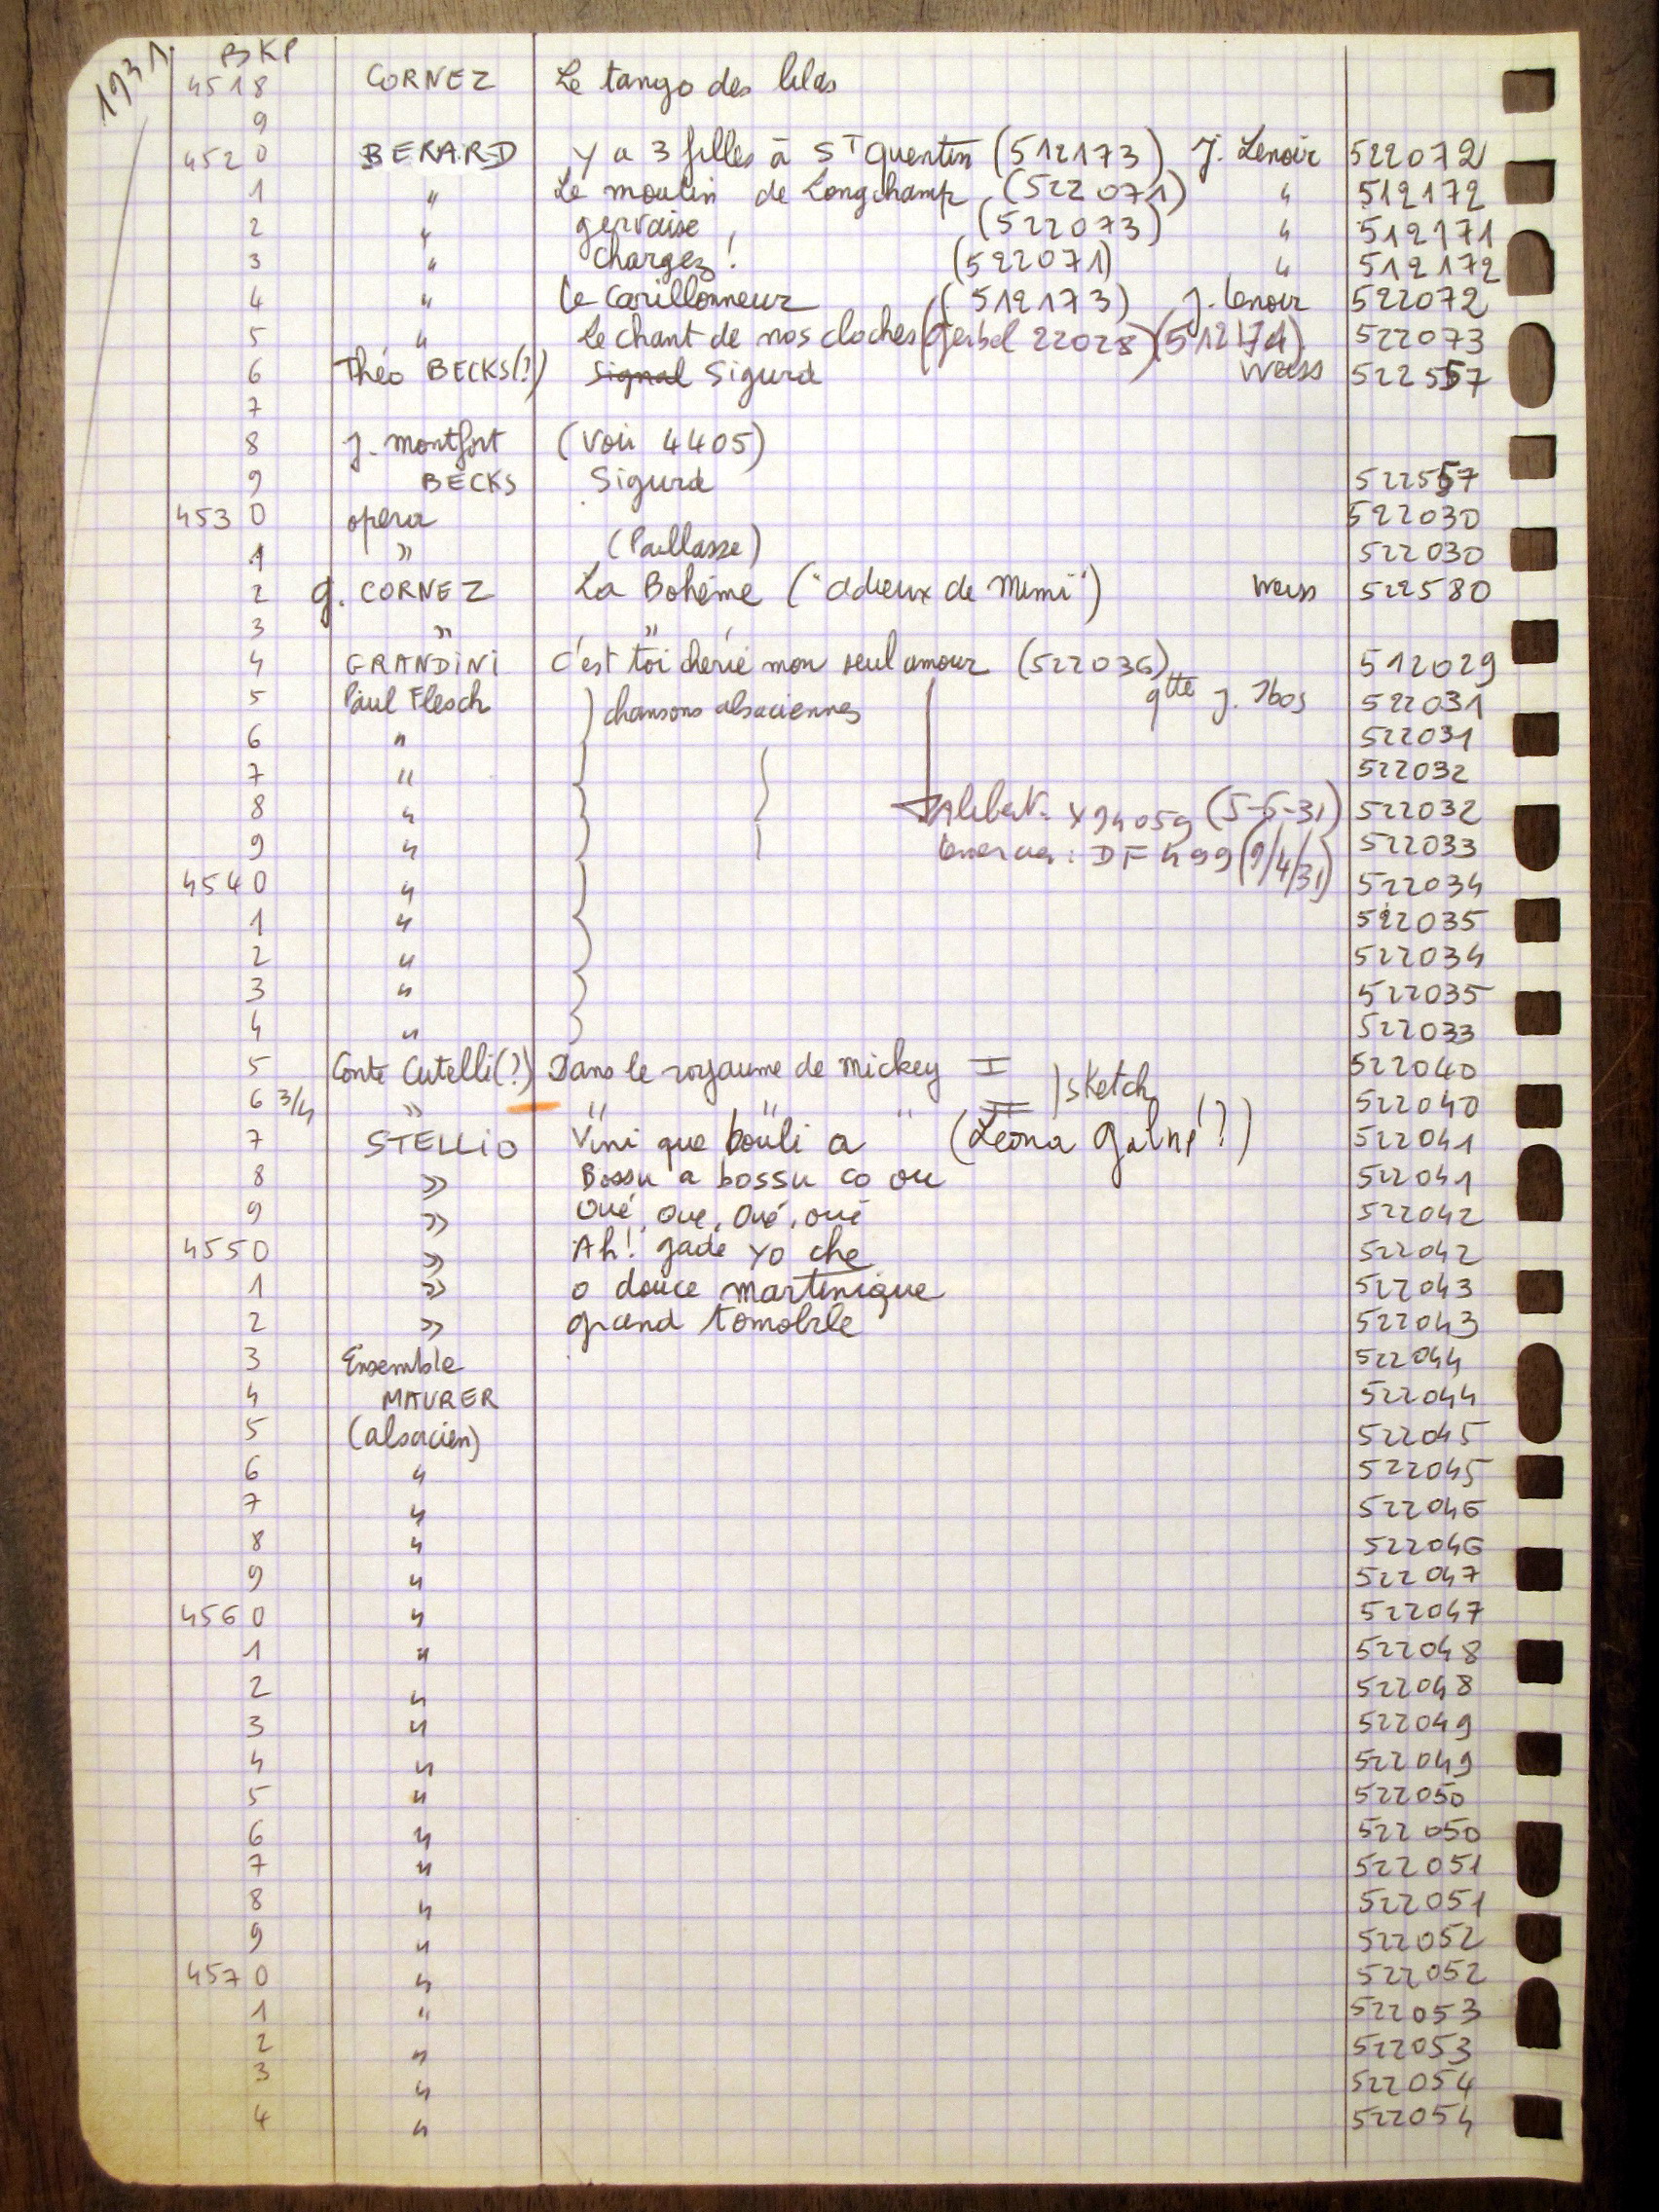 1931 BKP
4518 CORNEZ Le tango des lilas
9
4520 BERARD Y a 3 filles à ST Quentin (512173) J. Lenoir 522072
1 " Le moulin de Longchamp (522071) " 512172
2 " gervaise (522073) " 512171
3 " Chargez ! (522071) " 512172
4 " Le Carillonneur (512173) J. Lenoir 522072
5 " Le chant de nos cloches (Gerbel 22028) (512171) 522073
6 Théo BECKS(?) Signal Sigurd Weiss 522557
7
8 J. Montfort (Voir 4405)
9 BECKS Sigurd 522557
4530 opera 522030
1 " (Paillasse) 522030
2 G. CORNEZ La Bohême ("adieux de Mimi") Weiss 522580
3 " "
4 GRANDINI C'est toi chérie mon seul amour (522036) 512029
5 Paul Flesch } chansons alsaciennes gtte J. Ibos 522031
6 " 522031
7 " 522032
8 " Alibert: X94059 (5-5-31) 522032
9 " : DF 499 (9/4/31) 522033
4540 " 522034
1 " 522035
2 " 522034
3 " 522035
4 " 522033
5 Conte Cutelli(?) Dans le royaume de Mickey I 522040
6 3/4 " " " " II ) sketch 522040
7 STELLIO Vini que bouli a (Leona Gabriel ?) 522041
8 " Bossu a bossu co ou 522041
9 " Oué, oué, oué, oué 522042
4550 " Ah! gadé yo che 522042
1 " O douce martinique 522043
2 " grand tomobile 522043
3 Ensemble 522044
4 MAURER 522044
5 (alsacien) 522045
6 " 522045
7 " 522046
8 " 522046
9 " 522047
4560 " 522047
1 " 522048
2 " 522048
3 " 522049
4 " 522049
5 " 522050
6 " 522050
7 " 522051
8 " 522051
9 " 522052
4570 " 522052
1 " 522053
2 " 522053
3 " 522054
4 " 522054